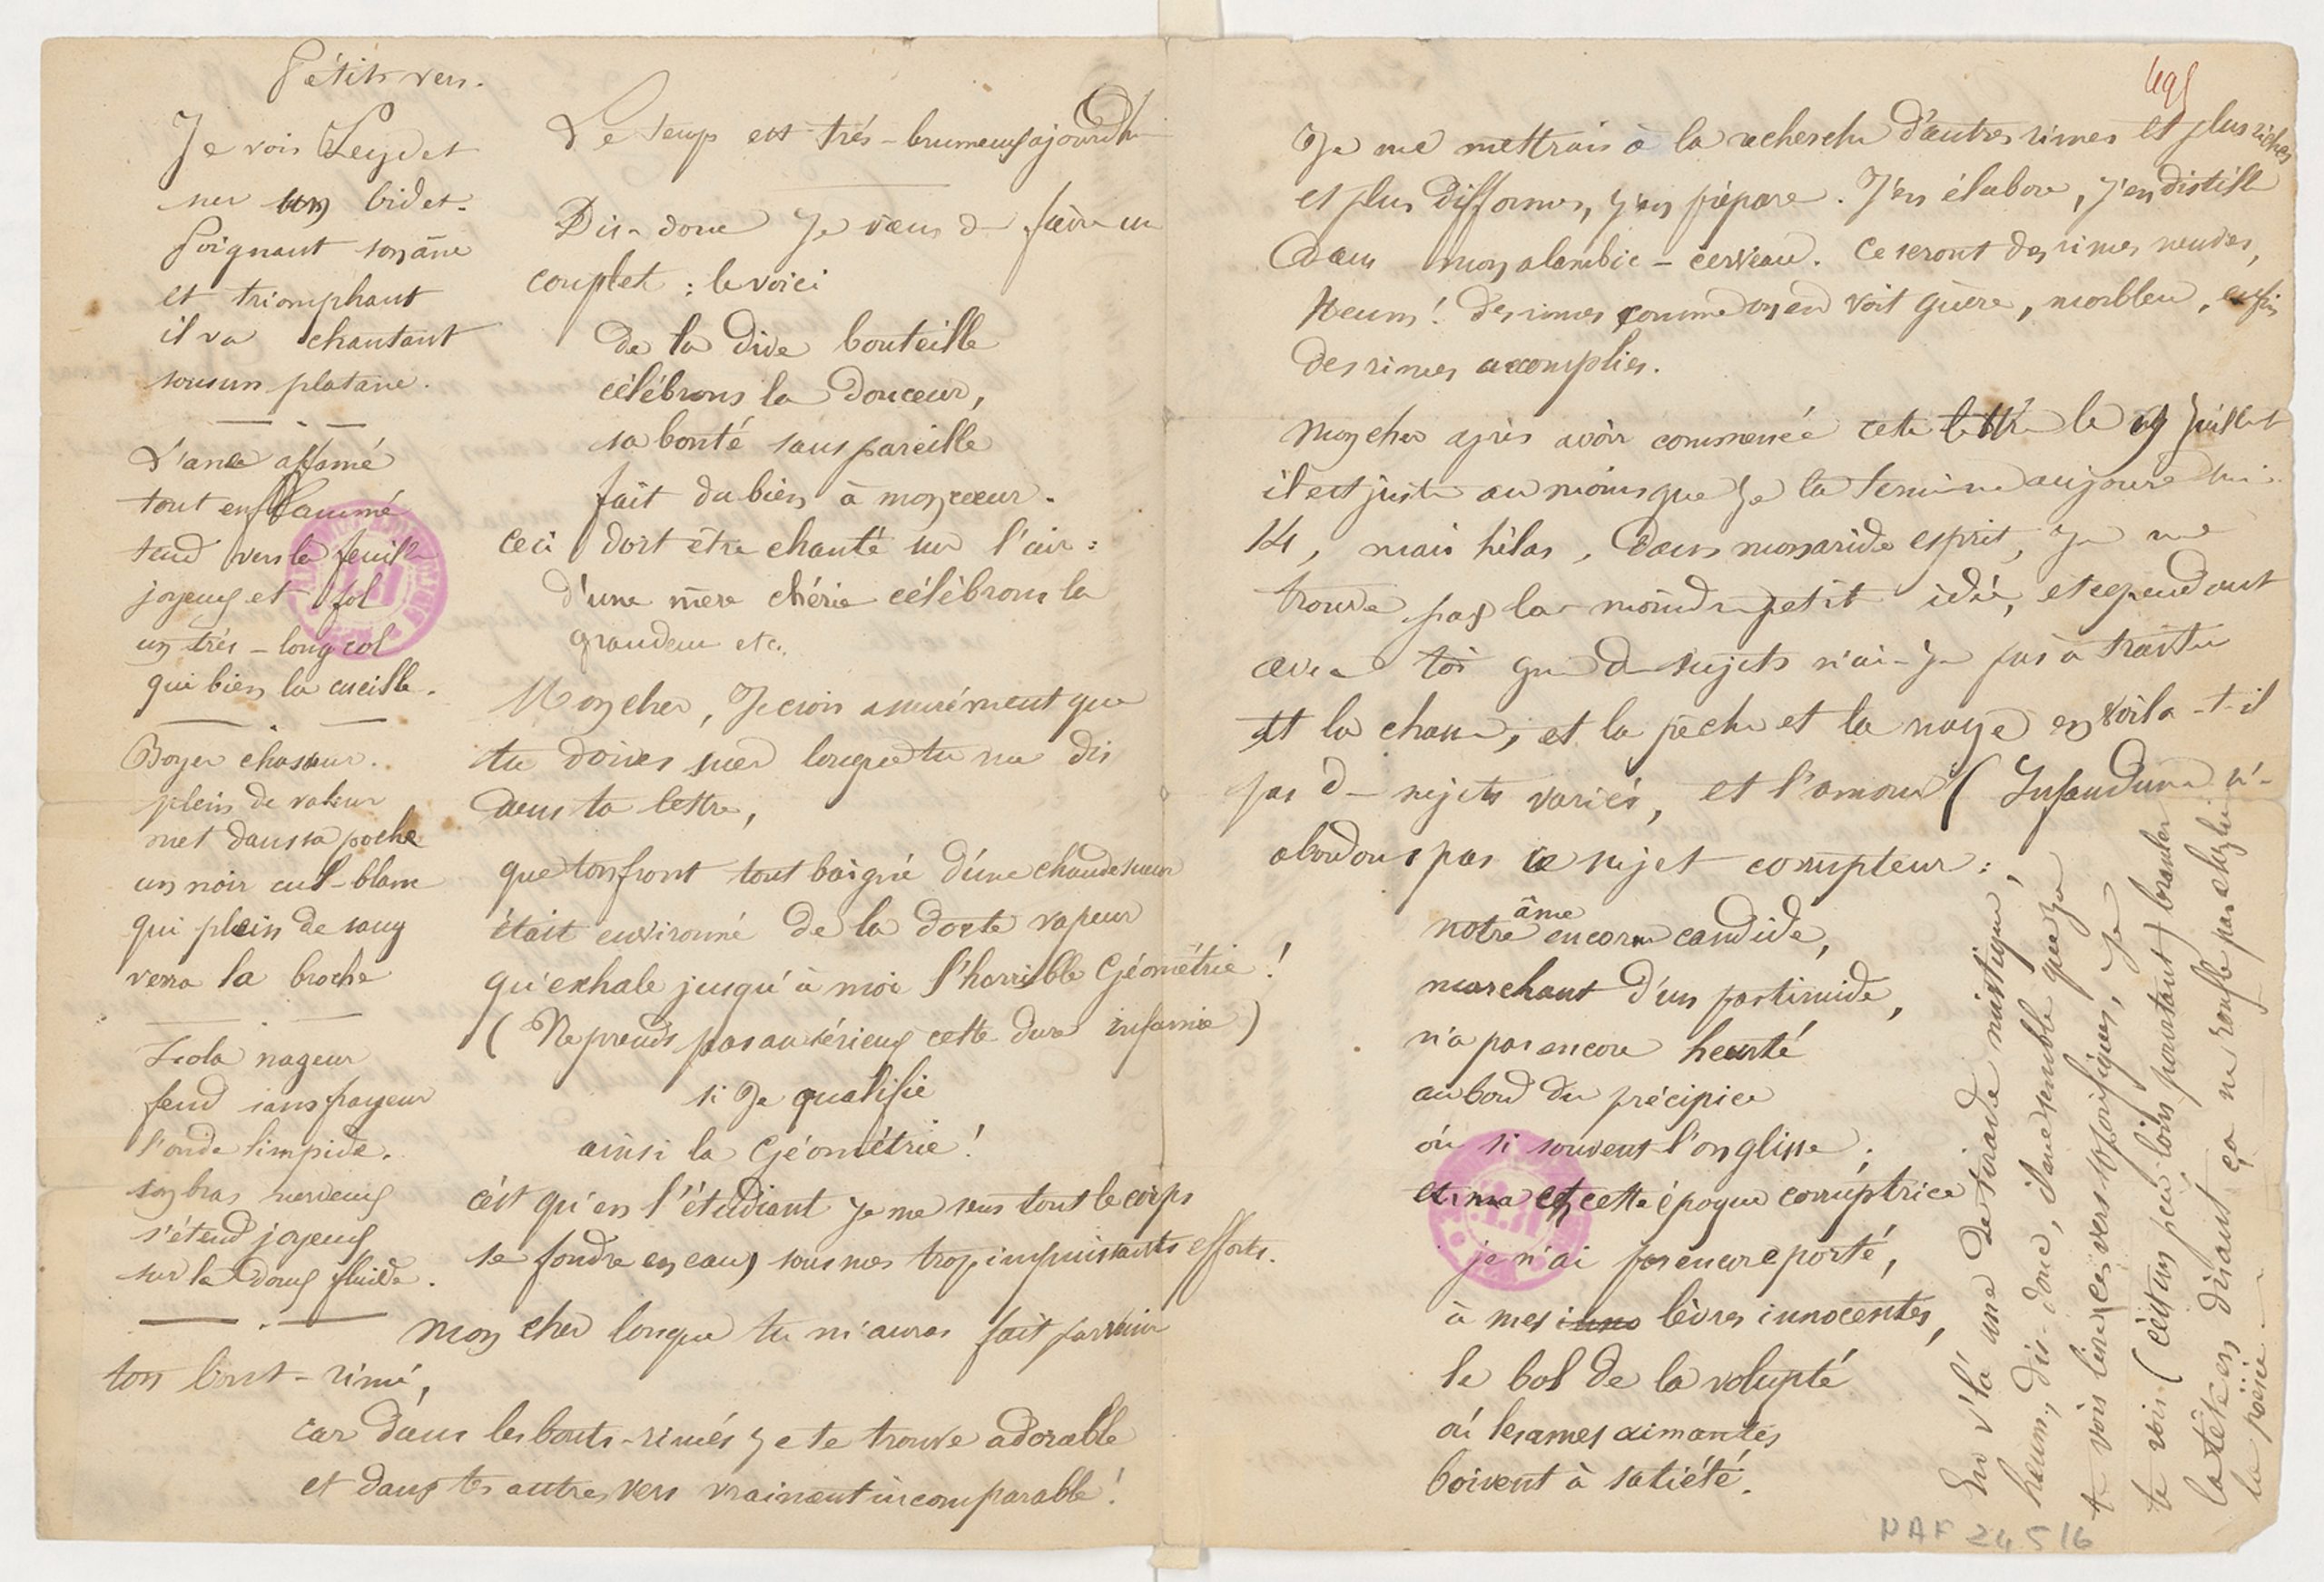 Pétits vers.
Je vois Leydet
sur un bidet.
Poignant son âne
et triomphant
il va chantant
sous un platane.
L'ane affamé
tout enflammé
tend vers la feuille
joyeux et fol
un très-long col
qui bien la cueille.
Boyer chasseur.
plein de valeur
met dans sa poche
un noir cul-blanc
qui plein de sang
verra la broche
Zola nageur
fend sans frayeur
l'onde limpide.
son bras nerveux
s'étend joyeux
sur le doux fluide.
Le temps est très-brumeux ajourdhui
Dis-donc Je viens de faire un
couplet : le voici
De la dive bouteille
célébrons la douceur,
sa bonté sans pareille
fait du bien à mon coeur.
ceci doit être chanté sur l'air :
d'une mère chérie célébrons la
grandeur etc.
Mon cher, Je crois assurément que
tu doives suer lorsque tu me dis
dans ta lettre,
que ton front tout baigné d'une chaude sueur
était environné de la docte vapeur
qu'exhale jusqu'à moi l'horrible Géométrie !
(Ne prends pas au sérieux cette dure infamie)
si Je qualifie
ainsi la Géométrie !
c'est qu'en l'étudiant je me sens tout le corps
se fondre en eau, sous mes trop impuissants efforts.
Mon cher lorsque tu m'auras fait parvenir
ton bout-rimé,
car dans les bouts-rimés je te trouve adorable
et dans les autres vers vraiment incomparable !
495
Je me mettrais à la recherche d'autres rimes et plus riches
et plus difformes, j'en prépare. J'en élabore, j'en distille
Dans mon alambic-cerveau. Ce seront des rimes neuves,
Heum ! Des rimes comme on en voit guère, morbleu, enfin
des rimes accomplies.
Mon cher après avoir commencé cete lettre le 9 Juillet
il est juste au moins que Je la termine aujourd'hui
14, mais hélas, dans mon aride esprit, Je ne
trouve pas la moindre petit idée, et cependant
avec toi que de sujets n'ai-Je pas à traiter
et la chasse, et la pêche et la nage en voila-t-il
pas de sujets variés, et l'amour (Infandum n'-
abordons pas ce sujet corrupteur :
notre âme encore candide,
marchant d'un pas timide,
n'a pas encore heurté
au bord du précipice
où si souvent l'on glisse,
en cette époque corruptrice
je n'ai pas encore porté,
à mes lèvres innocentes,
le bol de la volupté
où les ames aimantes
boivent à satiété.
En v'là une de tirade mistique,
heum, dis-donc, il me semble que Je
te vois lire ces vers soporifiques, Je
te vois (c'est un peu loin pourtant) branler
la tête en disant ça ne ronfle pas chez lui
la poésie
NAF 24516